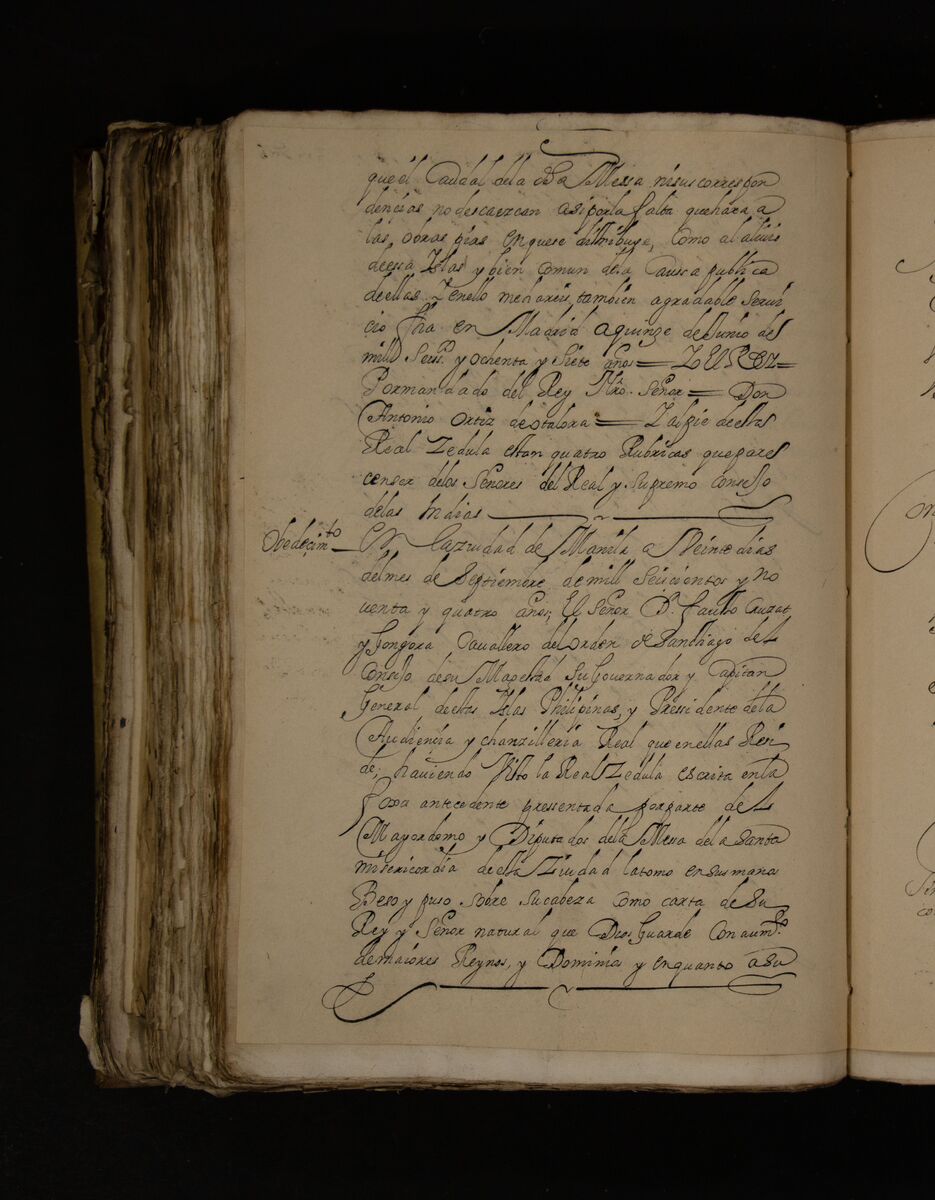 que el Caudal dela dha Messa ni sus correspon
dencias no descaezcan asi por la falta que hara a
las obras pias en que se distribuye, Como al alivio
de essas Islas y bien Comun dela Causa publica
de ellas Y en ello me hareis tambien agradable servi
cio fha en Madrid a quinze de Junio de
mill Seisos. y ochenta y siete años = YO EL REY =
Por mandado del Rey Nro. Señor = Don
Antonio Ortiz de otalora = Y al pie de esta
Real Zedula estan quatro Rubricas que pare
cen ser delos Señores del Real y Supremo Consejo
delas Indias
Obedecimto En la ziudad de Manila a Veinte dias
del mes de Septiembre de mill seiscientos y no
venta y quatro años; El Señor D. Fausto Cruzat
y Gongora Cavallero del orden de Santiago del
Consejo de su Magestad Su Governador y Capitan
General de estas Islas Philipinas, y Pressidente de la
Audiencia y chanzilleria Real que en ellas Resi
de, haviendo Visto la Real Zedula escrita en la
foxa antecedente pressentada por parte del
Mayordomo y Diputados dela Messa dela Santa
misericordia de esta Ziudad la tomo en sus manos
Beso y puso sobre su cabeza Como carta de Su
Rey y Señor natural que Dios Guarde Con aumto.
de maiores Reynos, y Dominios y en quanto a Su